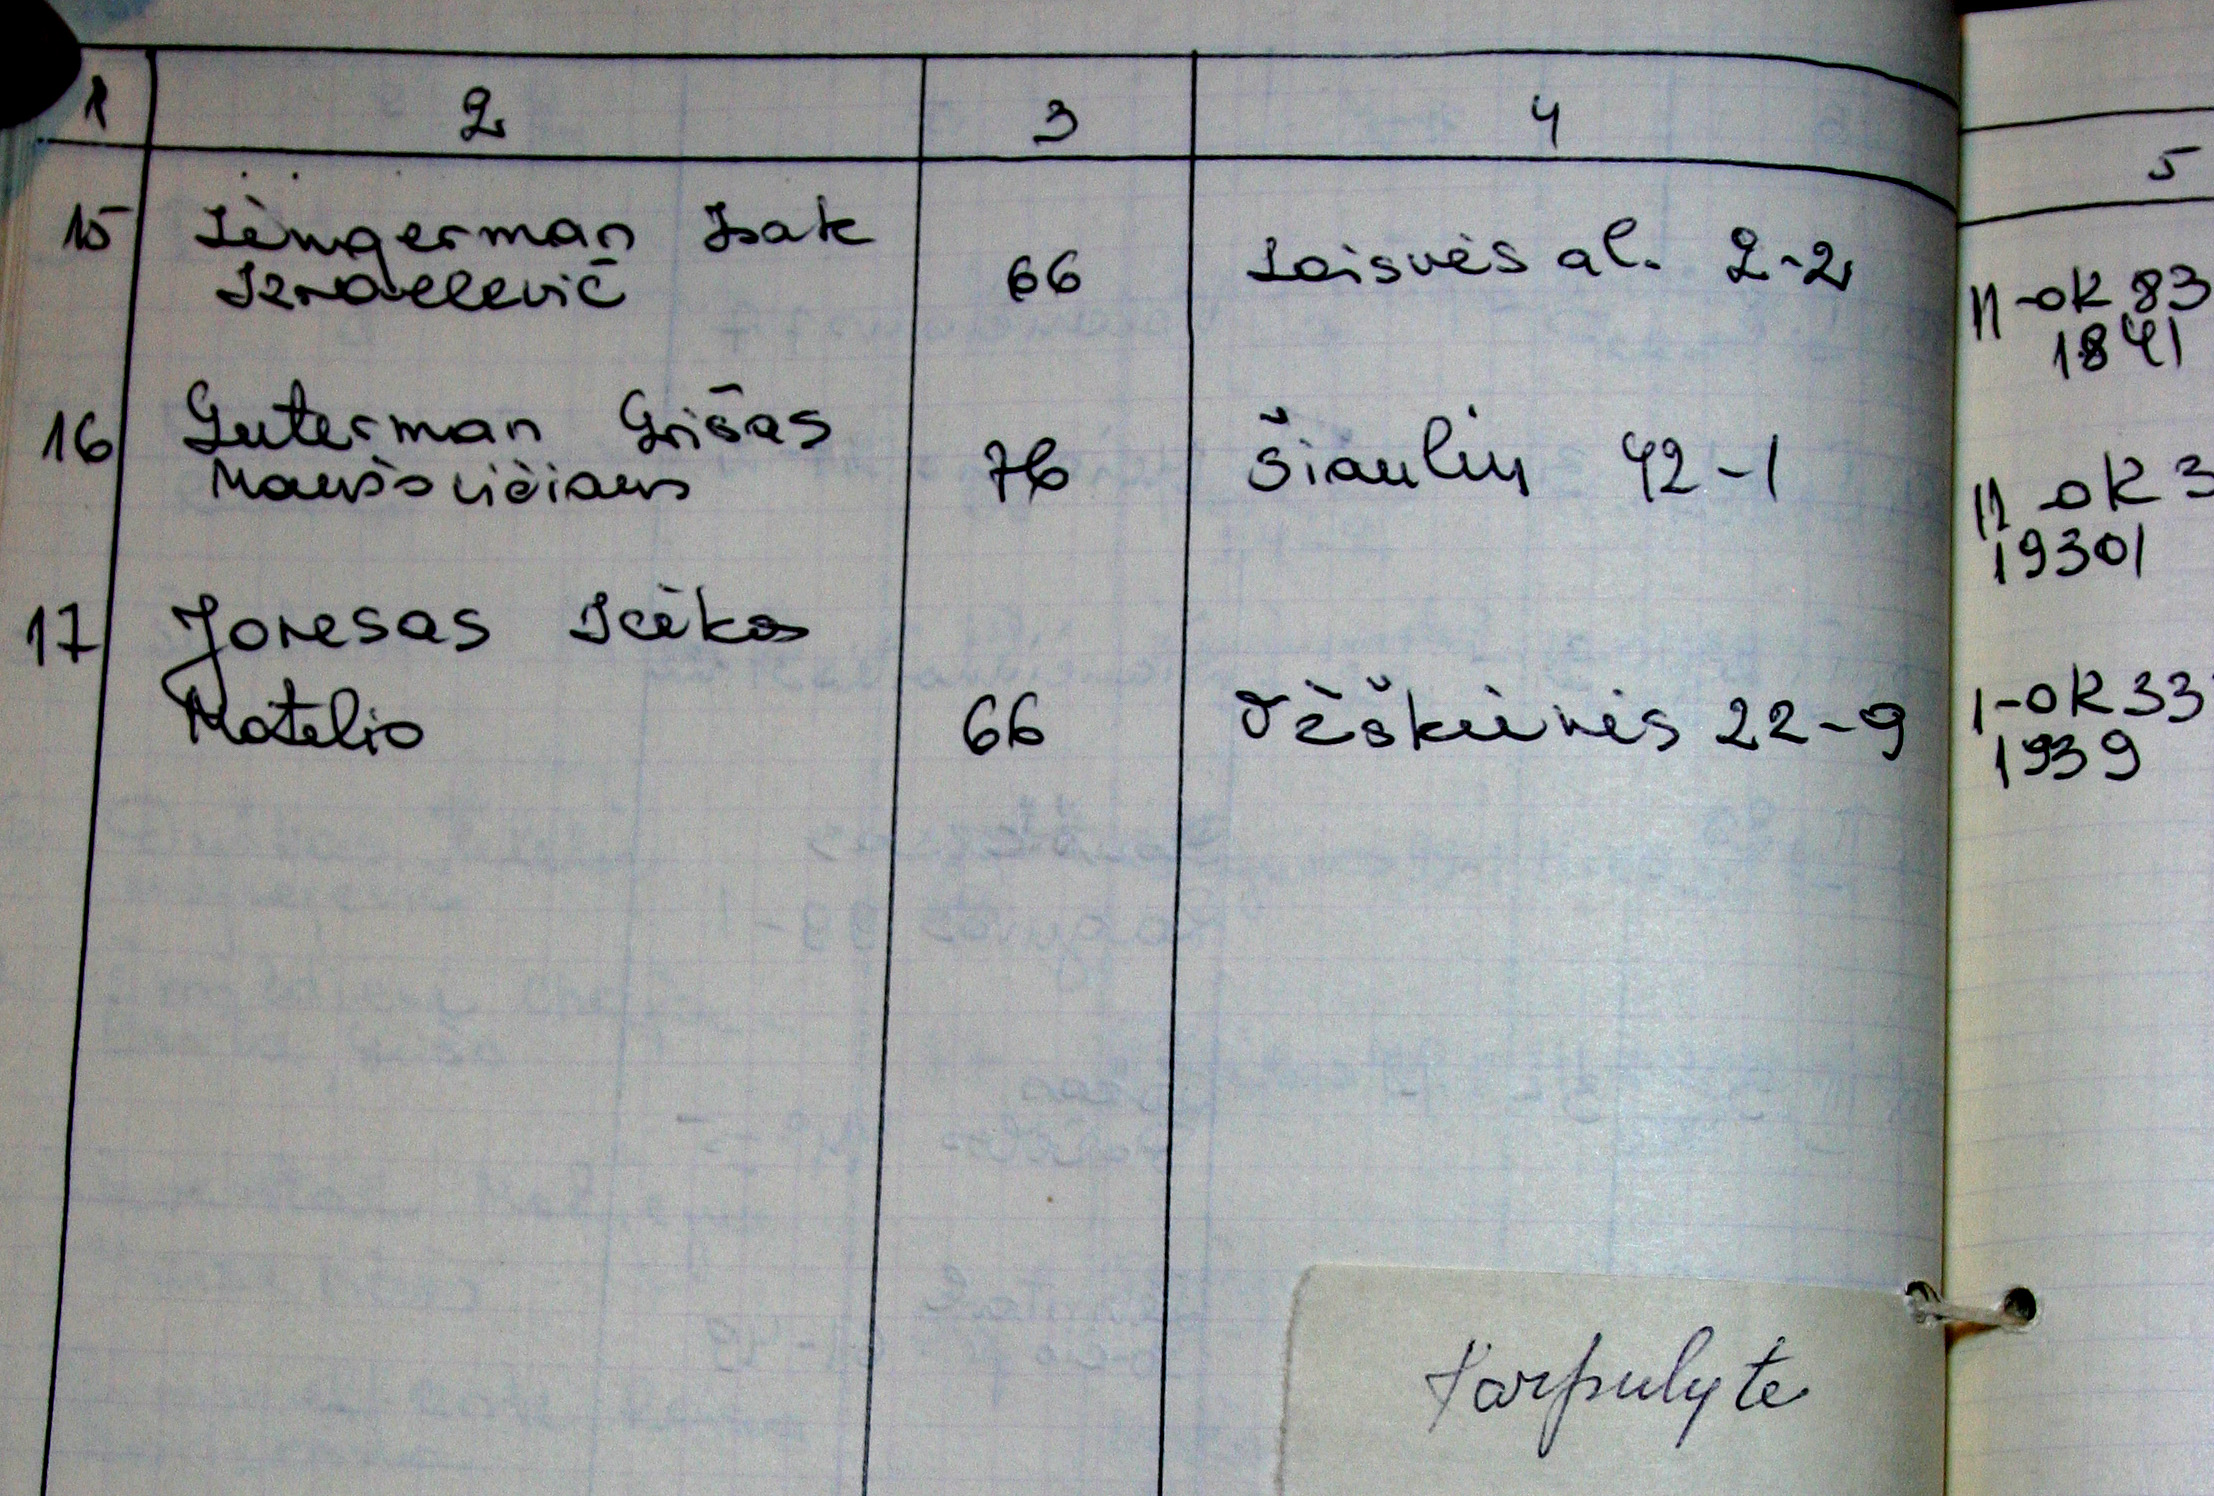 1 2 3 4 5
15 Lingerman Isak
Izraelevič 66 Laisvės al. 2-2 II-OK 83
1841
16 Guterman Grišas
Maušovičiaus 76 Šiaulių 42-1 II-OK 3
19301
17 Joresas Icikas
Motelio 66 Vėškienės 22-9 I-OK 33
1939
Karpulytė